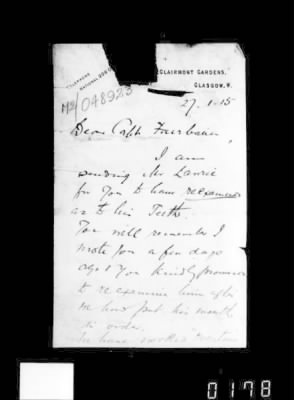 TELEPHONE
NATIONAL
CLAIRMONT GARDENS,
GLASGOW, W.
M2/048923
27. 1. 15
Dear Capt Fairbairn,
I am
sending Mr Lawrie
for you to have reexamined
as to his Teeth.
You will remember I
wrote you a few days
ago & you kindly promised
to reexamine him after
we had put his mouth
in order.
We have
0178